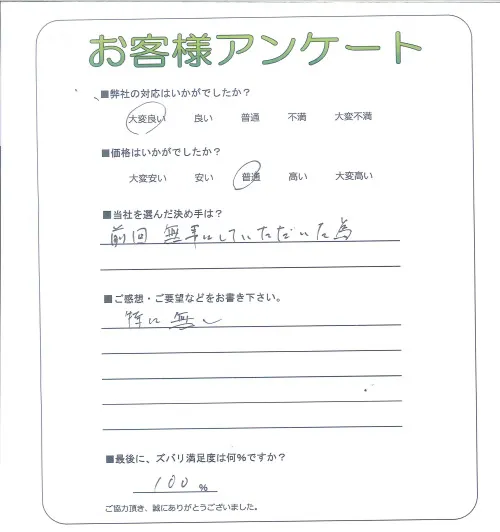 お客様アンケート
■弊社の対応はいかがでしたか?
大変良い 良い 普通 不満 大変不満
■価格はいかがでしたか?
大変安い 安い 普通 高い 大変高い
■当社を選んだ決め手は?
前回 無事にしていただいた為
■ご感想・ご要望などをお書き下さい。
特に無し
■最後に、ズバリ満足度は何%ですか?
100 %
ご協力頂き、誠にありがとうございました。